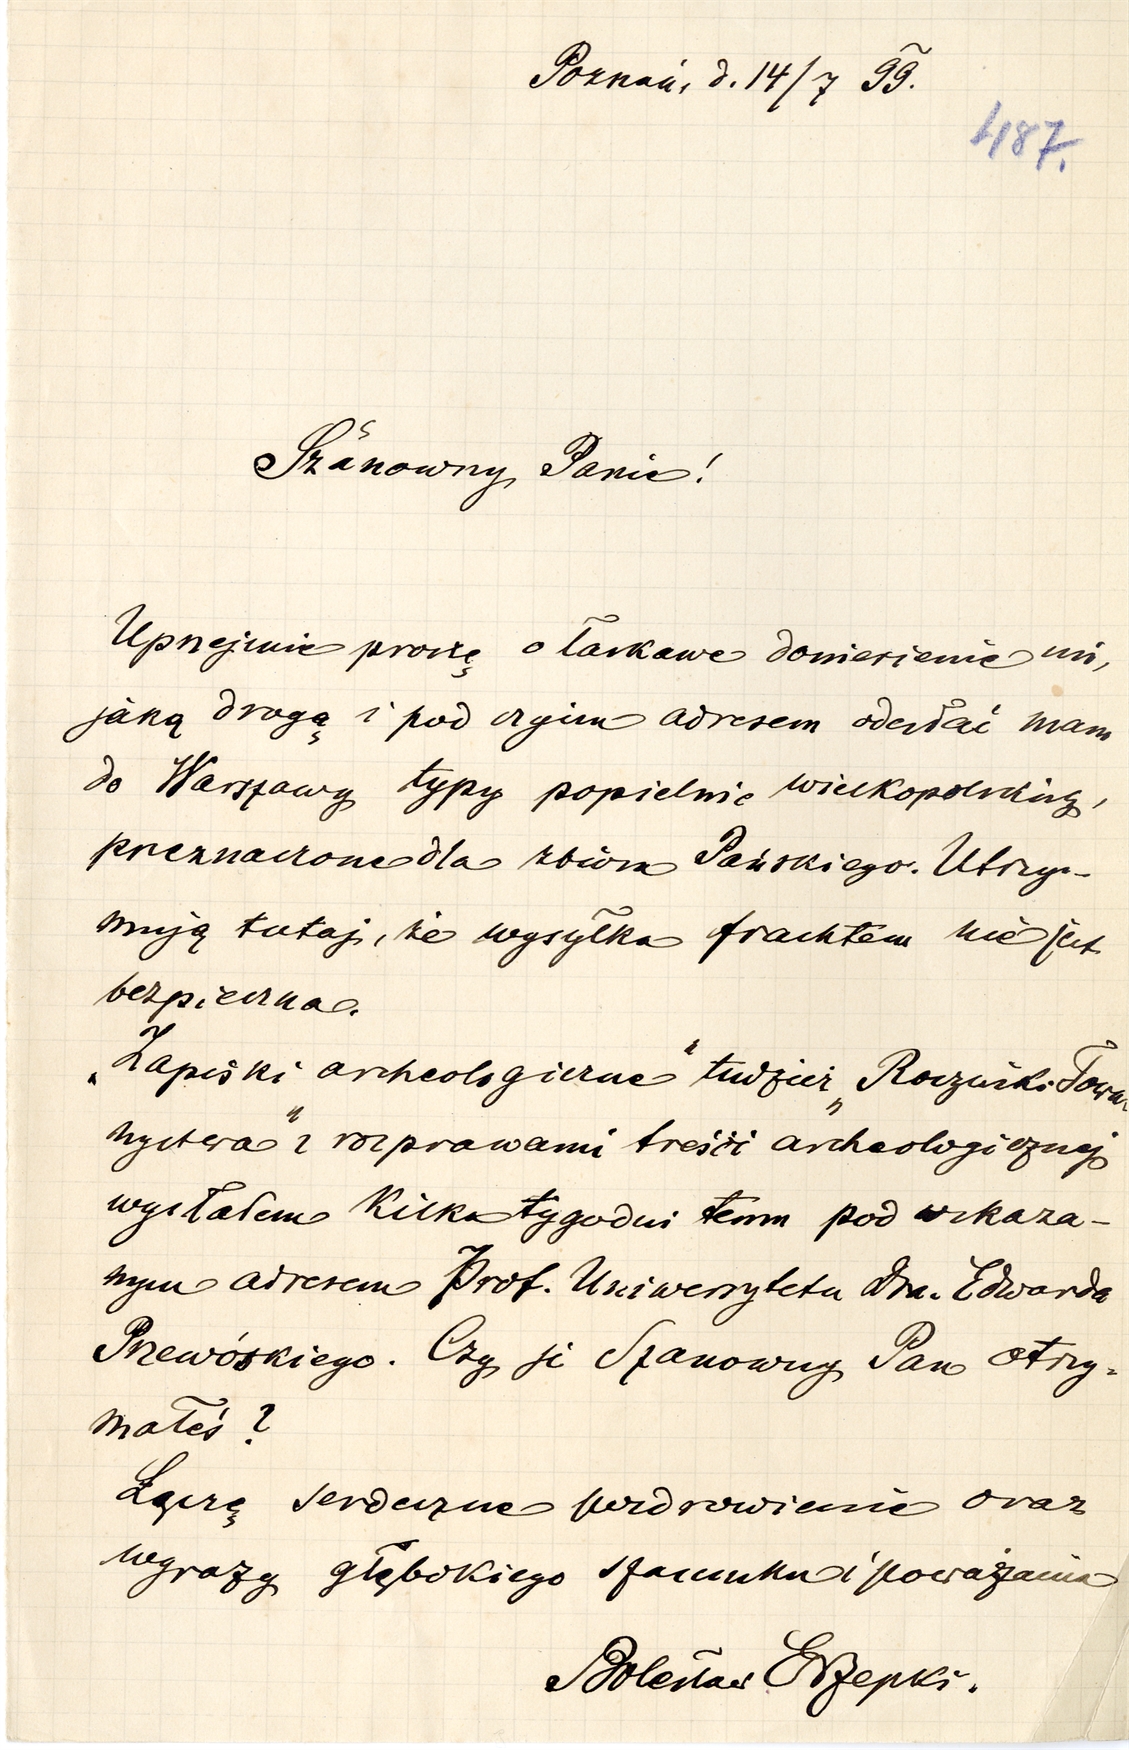 Poznań, d. 14/7 99.
487.
Szanowny Panie!
Uprzejmie proszę o łaskawe doniesienie mi,
jaką drogą i pod czyim adresem odesłać mam
do Warszawy typy popielnic wielkopolskich,
przeznaczone dla zbioru Pańskiego. Utrzy-
mują tutaj, że wysyłka frachtem nie jest
bezpieczna.
„Zapiski archeologiczne" tudzież „Roczniki Towa-
rzystwa" z rozprawami treści archeologicznej
wysłałem kilka tygodni temu pod wskaza-
nym adresem Prof. Uniwersytetu Dra. Edwarda
Przewóskiego. Czy je Szanowny Pan otrzy-
małeś?
Łączę serdeczne pozdrowienie oraz
wyrazy głębokiego szacunku i poważania
Bolesław Erzepki.